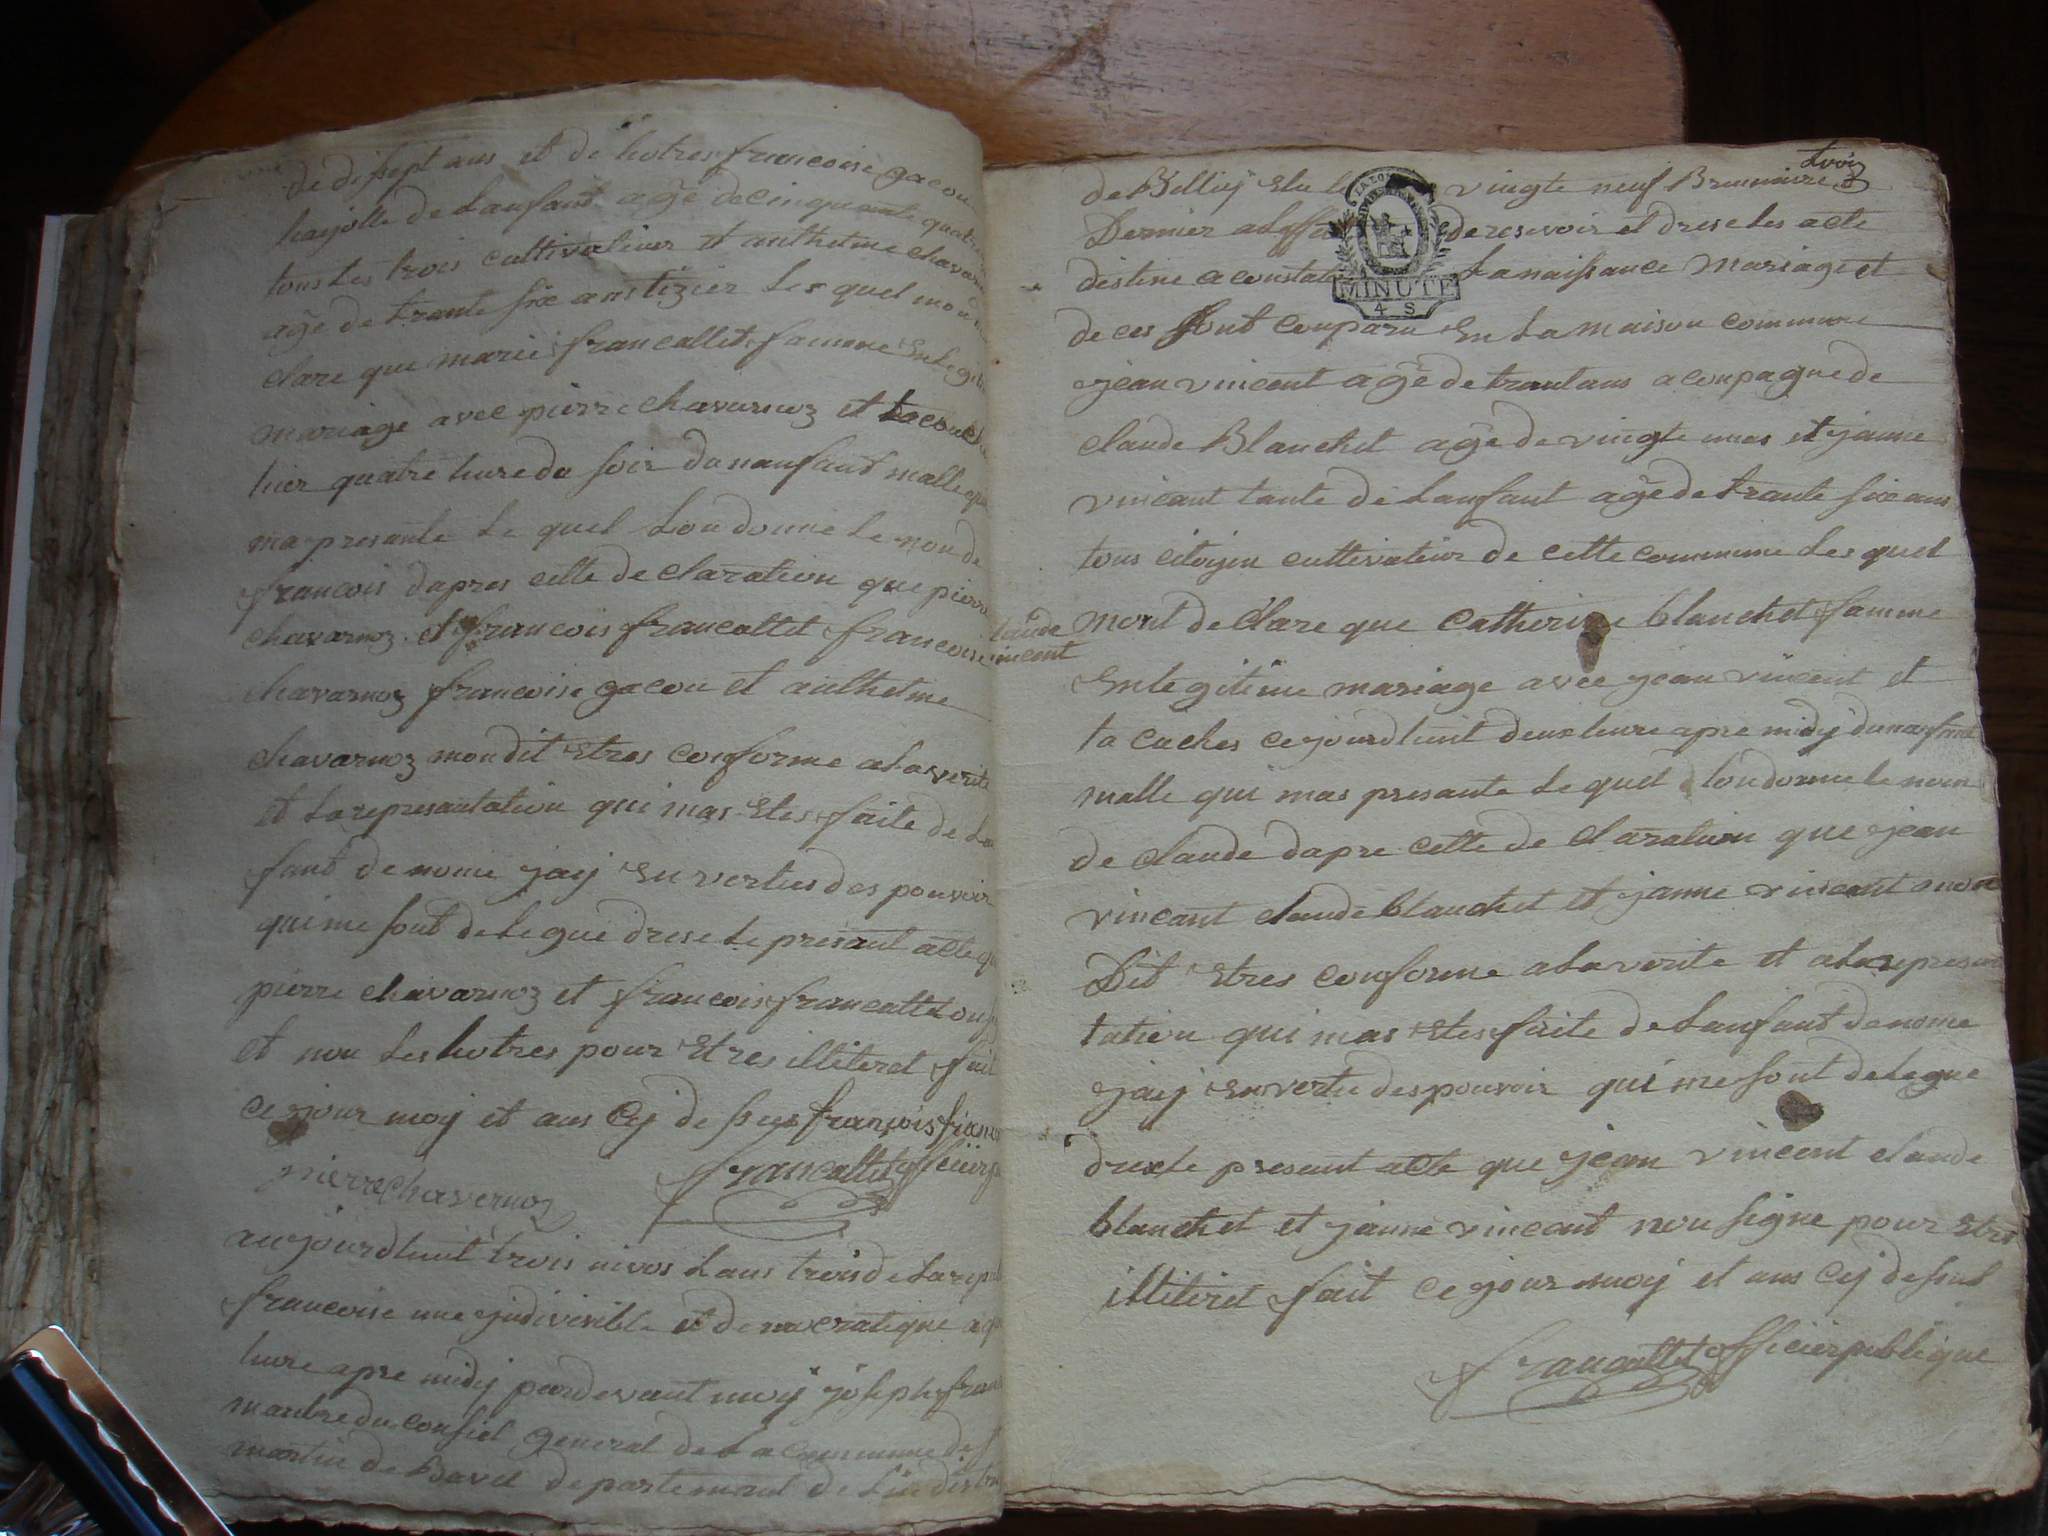 de disept ans et de hotres francoise gacou
hayolle de Lanfant age de cinquante quatre
tous Les trois cultivateur et anthelme chavarnoz
age de trante six ans tizier Les quel mon
clare que marie francallet famme En Legiti
mariage avec pierre chavarnoz et tacouche
hier quatre hure du soir dunanfant malle qui
ma presante Le quel Lon donne Le non de
francois dapres cette declaration que pierre
chavarnoz et francois francallet francoise
chavarnoz francoise gacou et anthelme
chavarnoz mon dit Etres conforme ala verite
et La represantation qui mas Etes faite de La
fant de nome jaij En vertus des pouvoir
qui me sont delegue drese Le presant acte q
pierre chavarnoz et francois francallet on
et non Les hotres pour Etres illiteret fait
ce jour moy et ans cy de seus françois franc
pierre chavernoz francallet officier
aujourdhuit trois nivos Lans trois de La repu
francoise une jndivisible et democratique a
hure apre midy pardevant moy joseph fran
manbre du consiel general de La commune de
martin de Bavel departemant de Lin dist
trois
de Belley Elu Le vingte neuf Brumaire
Dernier aleffai de resevoir et drese Les acte
destine a constate La naissance Mariage et
de ces sont conparu En La maison commune
jean vincent age de trant ans aconpagne de
claude Blanchet age de vingte unes et janne
vincant tante de Lanfant age de trante six ans
tous citoyen cultivateur de cette commune Les quel
claude
vincent
mont declare que Catherine blanchet famme
En legitime mariage avec jean vincent et
ta caches cejourdhuit deux heure apre midy dunanfant
malle qui mas presante Le quel Lon donne Le nom
de claude dapre cette declaration que jean
vincant claude blanchet et janne vincant mon
Dit Etres conforme a La verite et a La represen
tation qui mas Etes faite de Lanfant de nome
jaij En vertu des pouvoir qui me sont delegue
drese Le presant acte que jean vincent claude
blanchet et janne vincant non signe pour Etres
illiteret fait ce jour moy et ans cy desut
francallet officier publique
MINUTE
4 S